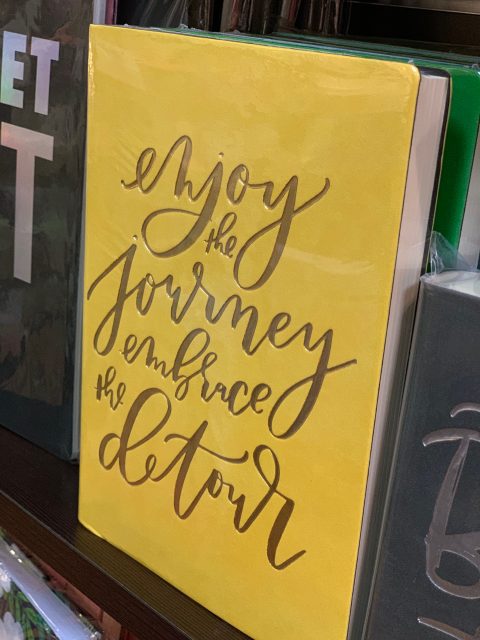 enjoy
the
journey
embrace
the
detour
ET
T